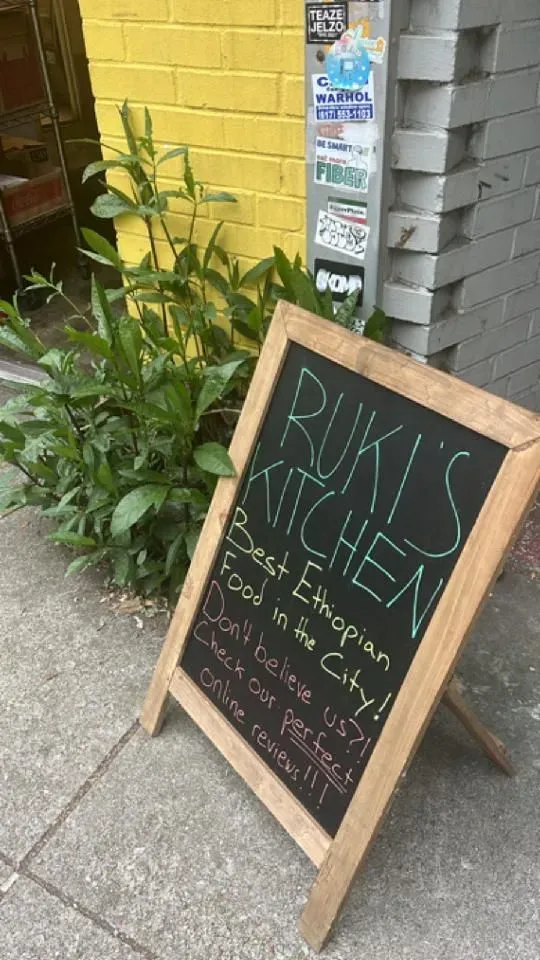 TEAZE
JELZO
WARHOL
(617) 553-1103
BE SMART
eat more
FIBER
RUKI'S
KITCHEN
Best Ethiopian
Food in the City!
Don't believe us?!
Check our perfect
online reviews!!!